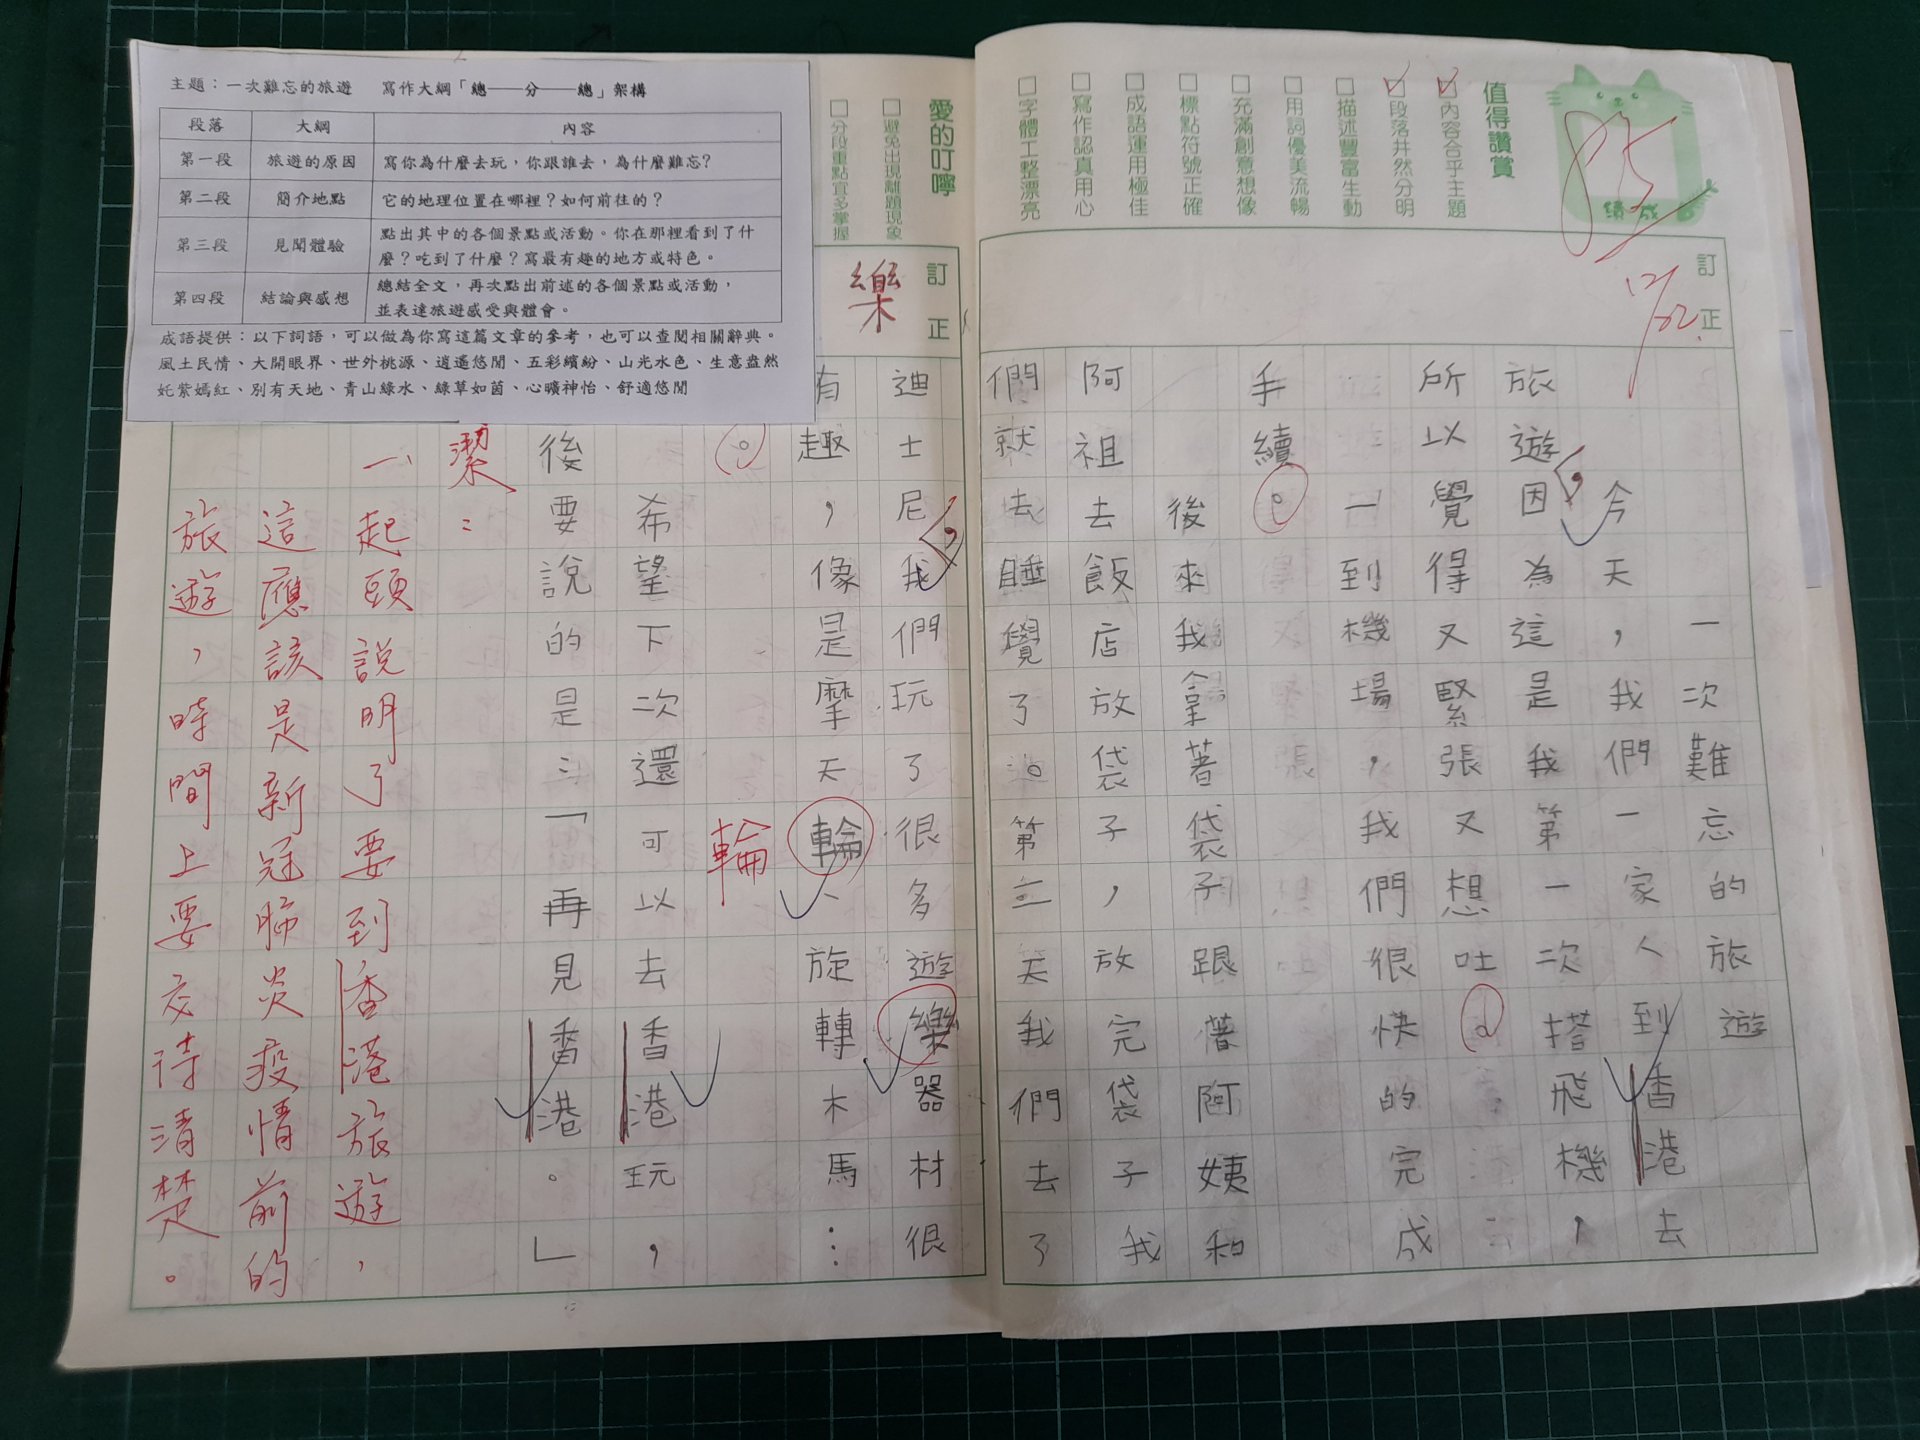 主題：一次難忘的旅遊　寫作大綱「總——分——總」架構
段落　大綱　內容
第一段　旅遊的原因　寫你為什麼去玩，你跟誰去，為什麼難忘？
第二段　簡介地點　它的地理位置在哪裡？如何前往的？
第三段　見聞體驗　點出其中的各個景點或活動。你在那裡看到了什
麼？吃到了什麼？寫最有趣的地方或特色。
第四段　結論與感想　總結全文，再次點出前述的各個景點或活動，
並表達旅遊感受與體會。
成語提供：以下詞語，可以做為你寫這篇文章的參考，也可以查閱相關辭典。
風土民情、大開眼界、世外桃源、逍遙悠閒、五彩繽紛、山光水色、生意盎然
奼紫嫣紅、別有天地、青山綠水、綠草如茵、心曠神怡、舒適悠閒
成績
85
12/22
值得讚賞
☑內容合乎主題
☑段落井然分明
□描述豐富生動
□用詞優美流暢
□充滿創意想像
□標點符號正確
□成語運用極佳
□寫作認真用心
□字體工整漂亮
訂正
一次難忘的旅遊
今天，我們一家人到香港去
旅遊，因為這是我第一次搭飛機，
所以覺得又緊張又想吐。
一到機場，我們很快的完成
手續。
後來我拿著袋子跟著阿姨和
阿祖去飯店放袋子，放完袋子我
們就去睡覺了。第二天我們去了
愛的叮嚀
□避免出現離題現象
□分段重點宜多掌握
訂正
樂
迪士尼，我們玩了很多遊樂器材很
有趣，像是摩天輪、旋轉木馬…
。
輪
希望下次還可以去香港玩，
後要說的是：「再見香港。」
潔：
一、起頭說明了要到香港旅遊，
這應該是新冠肺炎疫情前的
旅遊，時間上要交待清楚。